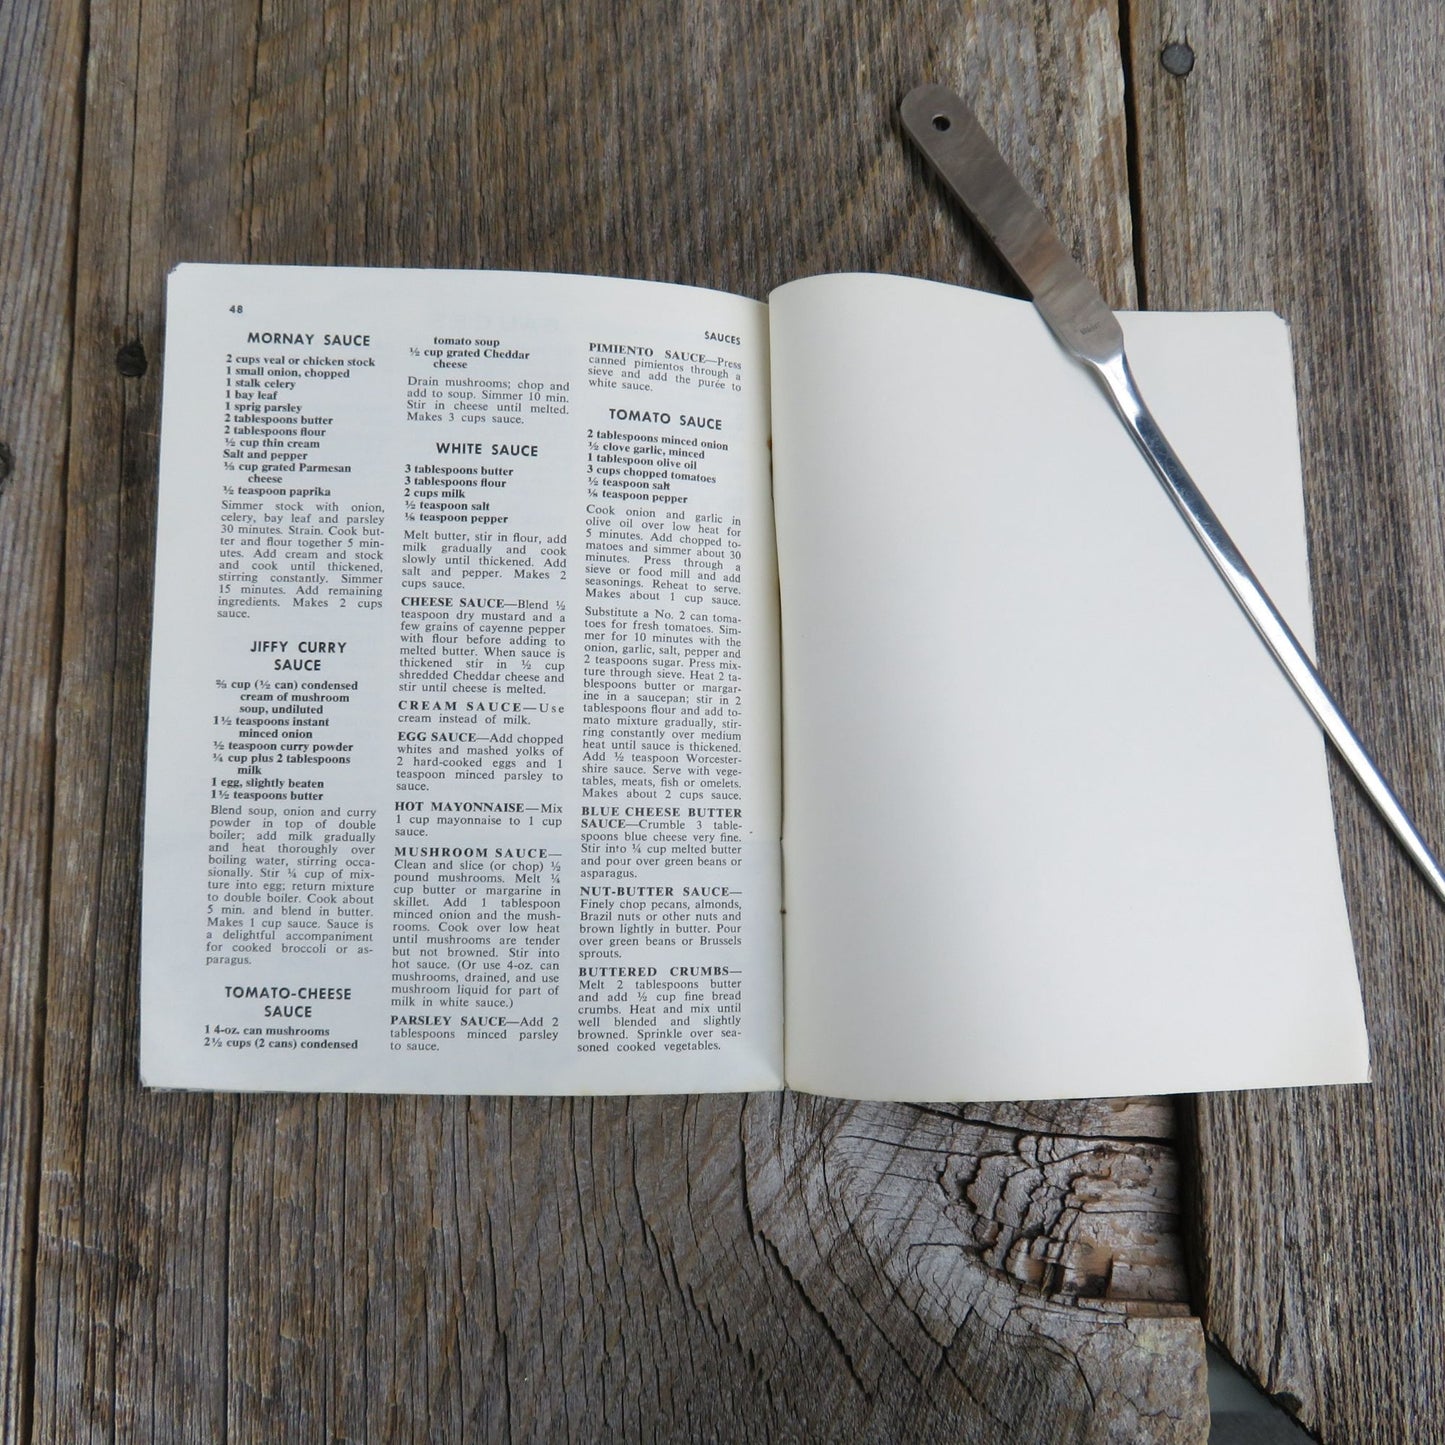 48
SAUCES
MORNAY SAUCE
2 cups veal or chicken stock
1 small onion, chopped
1 stalk celery
1 bay leaf
1 sprig parsley
2 tablespoons butter
2 tablespoons flour
½ cup thin cream
Salt and pepper
⅓ cup grated Parmesan
cheese
½ teaspoon paprika
Simmer stock with onion,
celery, bay leaf and parsley
30 minutes. Strain. Cook but-
ter and flour together 5 min-
utes. Add cream and stock
and cook until thickened,
stirring constantly. Simmer
15 minutes. Add remaining
ingredients. Makes 2 cups
sauce.
JIFFY CURRY
SAUCE
⅔ cup (½ can) condensed
cream of mushroom
soup, undiluted
1½ teaspoons instant
minced onion
½ teaspoon curry powder
¼ cup plus 2 tablespoons
milk
1 egg, slightly beaten
1½ teaspoons butter
Blend soup, onion and curry
powder in top of double
boiler; add milk gradually
and heat thoroughly over
boiling water, stirring occa-
sionally. Stir ¼ cup of mix-
ture into egg; return mixture
to double boiler. Cook about
5 min. and blend in butter.
Makes 1 cup sauce. Sauce is
a delightful accompaniment
for cooked broccoli or as-
paragus.
TOMATO-CHEESE
SAUCE
1 4-oz. can mushrooms
2½ cups (2 cans) condensed
tomato soup
½ cup grated Cheddar
cheese
Drain mushrooms; chop and
add to soup. Simmer 10 min.
Stir in cheese until melted.
Makes 3 cups sauce.
WHITE SAUCE
3 tablespoons butter
3 tablespoons flour
2 cups milk
½ teaspoon salt
⅛ teaspoon pepper
Melt butter, stir in flour, add
milk gradually and cook
slowly until thickened. Add
salt and pepper. Makes 2
cups sauce.
CHEESE SAUCE—Blend ½
teaspoon dry mustard and a
few grains of cayenne pepper
with flour before adding to
melted butter. When sauce is
thickened stir in ½ cup
shredded Cheddar cheese and
stir until cheese is melted.
CREAM SAUCE—Use
cream instead of milk.
EGG SAUCE—Add chopped
whites and mashed yolks of
2 hard-cooked eggs and 1
teaspoon minced parsley to
sauce.
HOT MAYONNAISE—Mix
1 cup mayonnaise to 1 cup
sauce.
MUSHROOM SAUCE—
Clean and slice (or chop) ½
pound mushrooms. Melt ¼
cup butter or margarine in
skillet. Add 1 tablespoon
minced onion and the mush-
rooms. Cook over low heat
until mushrooms are tender
but not browned. Stir into
hot sauce. (Or use 4-oz. can
mushrooms, drained, and use
mushroom liquid for part of
milk in white sauce.)
PARSLEY SAUCE—Add 2
tablespoons minced parsley
to sauce.
PIMIENTO SAUCE—Press
canned pimientos through a
sieve and add the purée to
white sauce.
TOMATO SAUCE
2 tablespoons minced onion
½ clove garlic, minced
1 tablespoon olive oil
3 cups chopped tomatoes
½ teaspoon salt
⅛ teaspoon pepper
Cook onion and garlic in
olive oil over low heat for
5 minutes. Add chopped to-
matoes and simmer about 30
minutes. Press through a
sieve or food mill and add
seasonings. Reheat to serve.
Makes about 1 cup sauce.
Substitute a No. 2 can toma-
toes for fresh tomatoes. Sim-
mer for 10 minutes with the
onion, garlic, salt, pepper and
2 teaspoons sugar. Press mix-
ture through sieve. Heat 2 ta-
blespoons butter or margar-
ine in a saucepan; stir in 2
tablespoons flour and add to-
mato mixture gradually, stir-
ring constantly over medium
heat until sauce is thickened.
Add ½ teaspoon Worcester-
shire sauce. Serve with vege-
tables, meats, fish or omelets.
Makes about 2 cups sauce.
BLUE CHEESE BUTTER
SAUCE—Crumble 3 table-
spoons blue cheese very fine.
Stir into ¼ cup melted butter
and pour over green beans or
asparagus.
NUT-BUTTER SAUCE—
Finely chop pecans, almonds,
Brazil nuts or other nuts and
brown lightly in butter. Pour
over green beans or Brussels
sprouts.
BUTTERED CRUMBS—
Melt 2 tablespoons butter
and add ½ cup fine bread
crumbs. Heat and mix until
well blended and slightly
browned. Sprinkle over sea-
soned cooked vegetables.